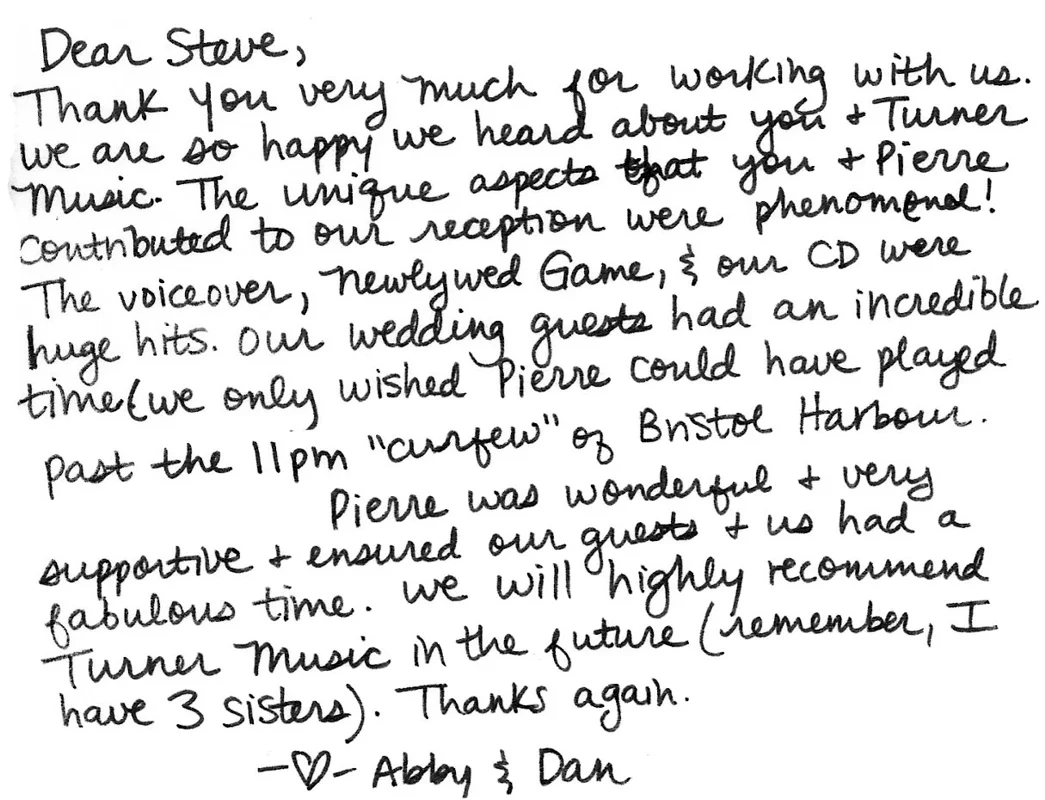 Dear Steve,
Thank you very much for working with us.
we are so happy we heard about you + Turner
Music. The unique aspects that you + Pierre
contributed to our reception were phenomenal!
The voiceover, newlywed Game, & our CD were
huge hits. Our wedding guests had an incredible
time (we only wished Pierre could have played
past the 11pm "curfew" of Bristol Harbour.
Pierre was wonderful + very
supportive + ensured our guests + us had a
fabulous time. We will highly recommend
Turner Music in the future (remember, I
have 3 sisters). Thanks again.
-♡- Abby & Dan